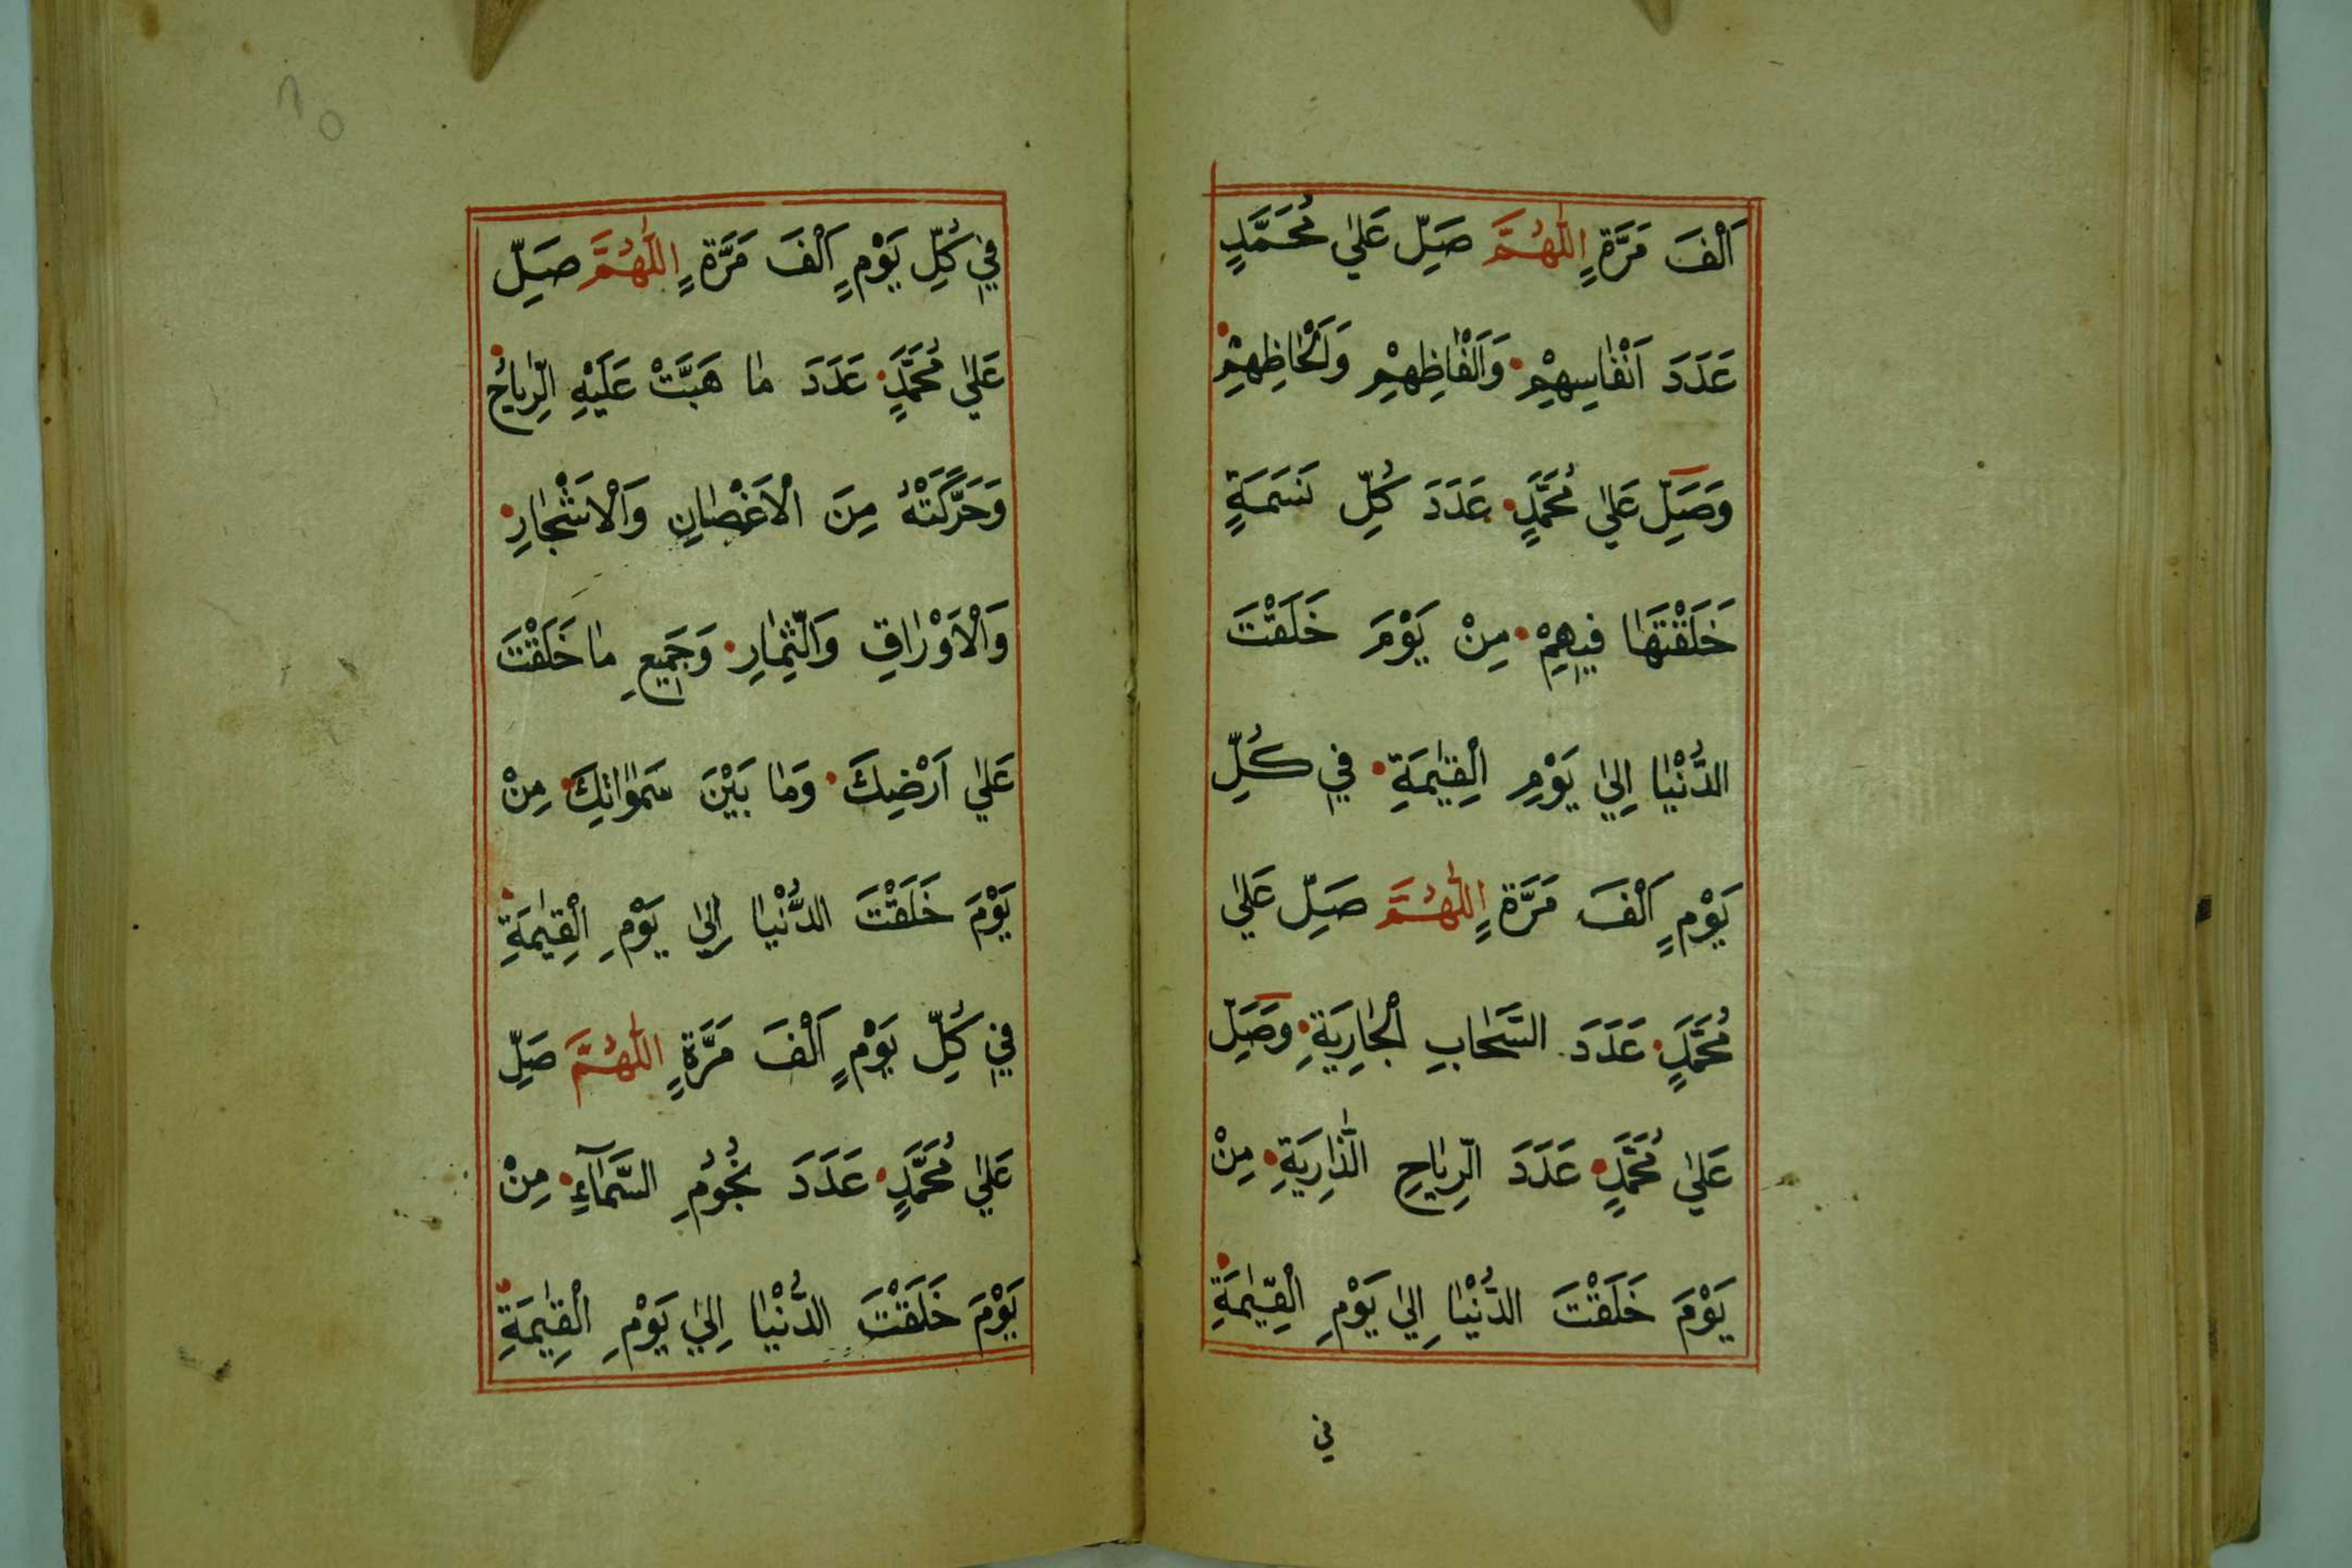 اَلْفَ مَرَّةٍ اَللّٰهُمَّ صَلِّ عَلٰي مُحَمَّدٍ
عَدَدَ اَنْفَاسِهِمْ وَاَلْفَاظِهِمْ وَاَلْحَاظِهِمْ
وَصَلِّ عَلٰي مُحَمَّدٍ عَدَدَ كُلِّ نَسَمَةٍ
خَلَقْتَهَا فِيهِمْ مِنْ يَوْمَ خَلَقْتَ
الدُّنْيَا اِلٰي يَوْمِ الْقِيٰمَةِ فِي كُلِّ
يَوْمٍ اَلْفَ مَرَّةٍ اَللّٰهُمَّ صَلِّ عَلٰي
مُحَمَّدٍ عَدَدَ السَّحَابِ الْجَارِيَةِ وَصَلِّ
عَلٰي مُحَمَّدٍ عَدَدَ الرِّيَاحِ الذَّارِيَةِ مِنْ
يَوْمَ خَلَقْتَ الدُّنْيَا اِلٰي يَوْمِ الْقِيٰمَةِ
في
فِي كُلِّ يَوْمٍ اَلْفَ مَرَّةٍ اَللّٰهُمَّ صَلِّ
عَلٰي مُحَمَّدٍ عَدَدَ مَا هَبَّتْ عَلَيْهِ الرِّيَاحُ
وَحَرَّكَتْهُ مِنَ الْاَغْصَانِ وَالْاَشْجَارِ
وَالْاَوْرَاقِ وَالثِّمَارِ وَجَمِيعِ مَا خَلَقْتَ
عَلٰي اَرْضِكَ وَمَا بَيْنَ سَمٰوَاتِكَ مِنْ
يَوْمَ خَلَقْتَ الدُّنْيَا اِلٰي يَوْمِ الْقِيٰمَةِ
فِي كُلِّ يَوْمٍ اَلْفَ مَرَّةٍ اَللّٰهُمَّ صَلِّ
عَلٰي مُحَمَّدٍ عَدَدَ نُجُومِ السَّمَآءِ مِنْ
يَوْمَ خَلَقْتَ الدُّنْيَا اِلٰي يَوْمِ الْقِيٰمَةِ